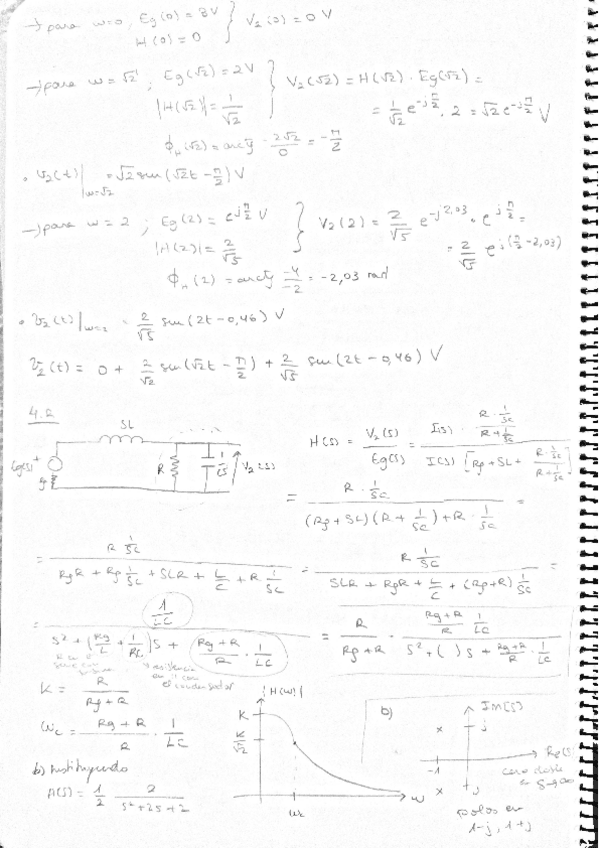 → para w=0, Eg(0) = 3V } V₂(0) = 0 V
H(0) = 0
→ para w = √2 ; Eg(√2) = 2V } V₂(√2) = H(√2) · Eg(√2) =
|H(√2)| = 1/√2
= 1/√2 e^{-jπ/2} · 2 = √2 e^{-jπ/2} V
ϕ_H(√2) = arctg -2√2/0 = -π/2
• v₂(t)|w=√2 = √2 sen(√2t - π/2) V
→ para w = 2 ; Eg(2) = e^{jπ/2} V } V₂(2) = 2/√5 e^{-j2,03} · e^{jπ/2} =
|H(2)| = 2/√5
= 2/√5 e^{j(π/2 - 2,03)}
ϕ_H(2) = arctg -4/-2 = -2,03 rad
• v₂(t)|w=2 = 2/√5 sen(2t - 0,46) V
v₂(t) = 0 + 2/√2 sen(√2t - π/2) + 2/√5 sen(2t - 0,46) V
4.2
SL
Eg(s) + R 1/SC V₂(s)
H(s) = V₂(s)/Eg(s) = I(s) · (R · 1/SC)/(R + 1/SC) / I(s) [Rg + SL + (R · 1/SC)/(R + 1/SC)]
= R · 1/SC / (Rg + SL)(R + 1/SC) + R · 1/SC =
= R 1/SC / RgR + Rg 1/SC + SLR + L/C + R 1/SC = R 1/SC / SLR + RgR + L/C + (Rg+R) 1/SC =
= 1/LC / S² + (Rg/L + 1/RC)S + (Rg+R)/R · 1/LC = R/(Rg+R) · (Rg+R)/R 1/LC / S² + ( )S + (Rg+R)/R · 1/LC
resistencia
en // con
el condensador
K = R/(Rg+R)
ωc = (Rg+R)/R · 1/LC
|H(w)|
K
K/√2
ωc
w
b) sustituyendo
H(s) = 1/2 2/(S²+2S+2)
b)
Im[s]
j
Re[s]
-1
-j
cero doble
en S→∞
polos en
-1-j, 1+j